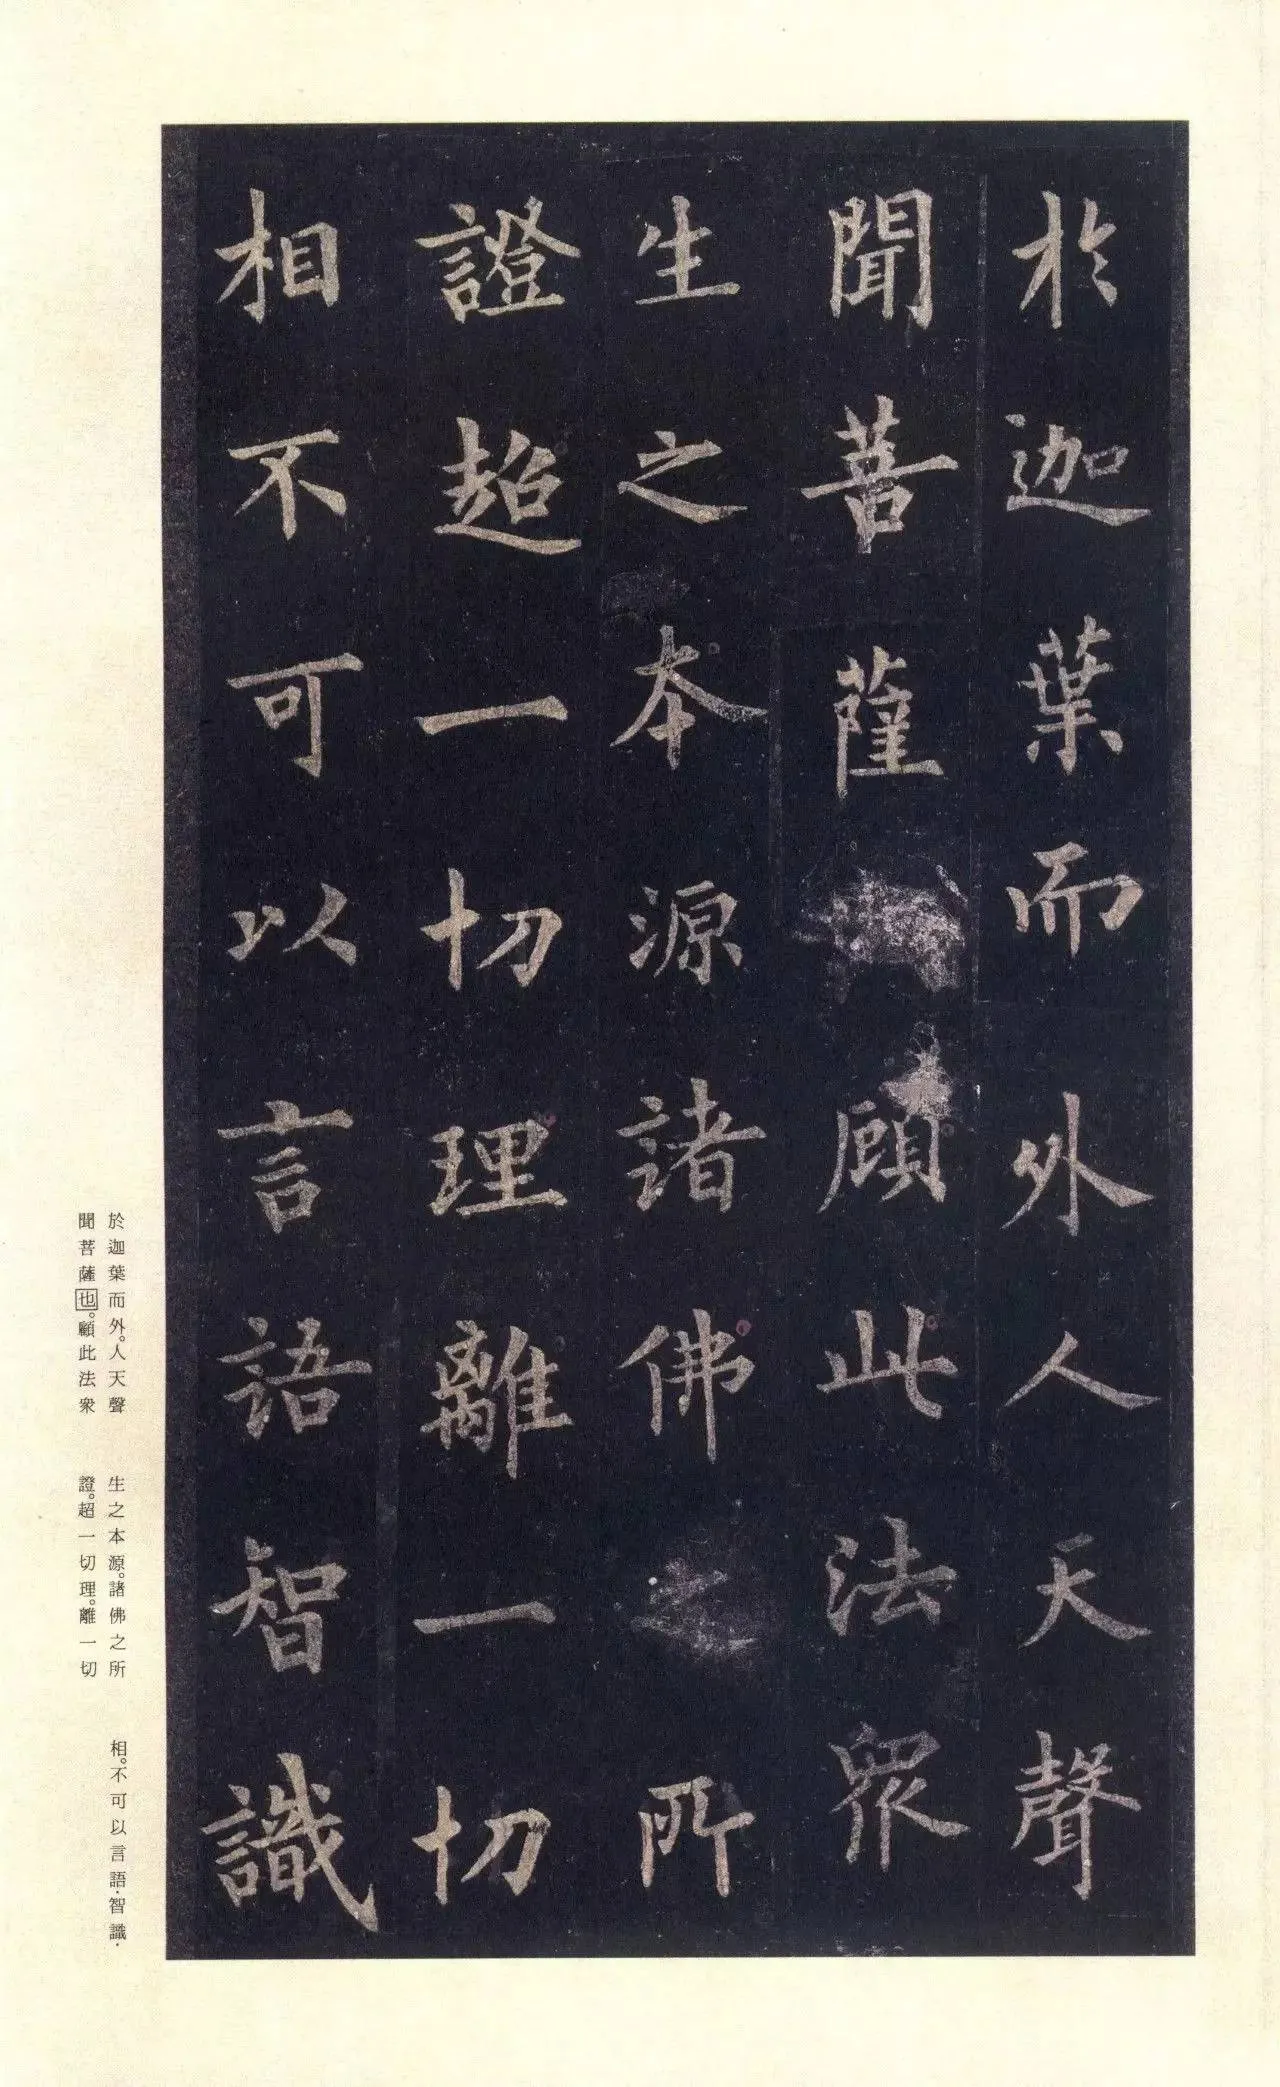 於迦葉而外人天聲
聞菩薩顧此法眾
生之本源諸佛之所
證超一切理離一切
相不可以言語智識
於迦葉而外。人天聲
聞菩薩也。顧此法眾
生之本源。諸佛之所
證。超一切理。離一切
相。不可以言語·智識·